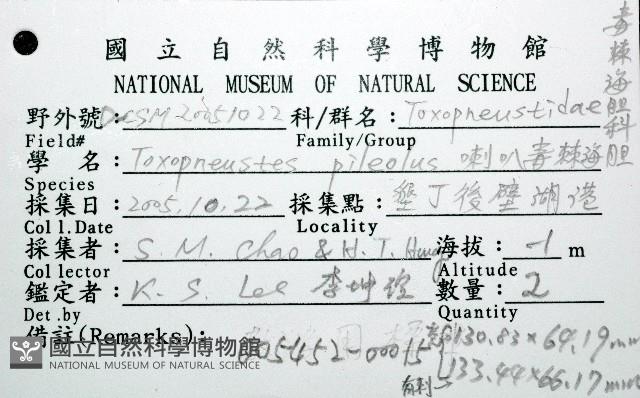 國立自然科學博物館
NATIONAL MUSEUM OF NATURAL SCIENCE
毒棘海胆科
野外號:DCSM-20051022 科/群名:Toxopneustidae
Field# Family/Group
學 名:Toxopneustes pileolus 喇叭毒棘海胆
Species
採集日:2005.10.22 採集點:墾丁後壁湖港
Col l.Date Locality
採集者:S. M. Chao & H. T. Hung 海拔:-1 m
Collector Altitude
鑑定者:K. S. Lee 李坤瑄 數量:2
Det.by Quantity
備註(Remarks):
005452-00015 130.83×64.19mm
133.44×66.17mm
國立自然科學博物館
NATIONAL MUSEUM OF NATURAL SCIENCE